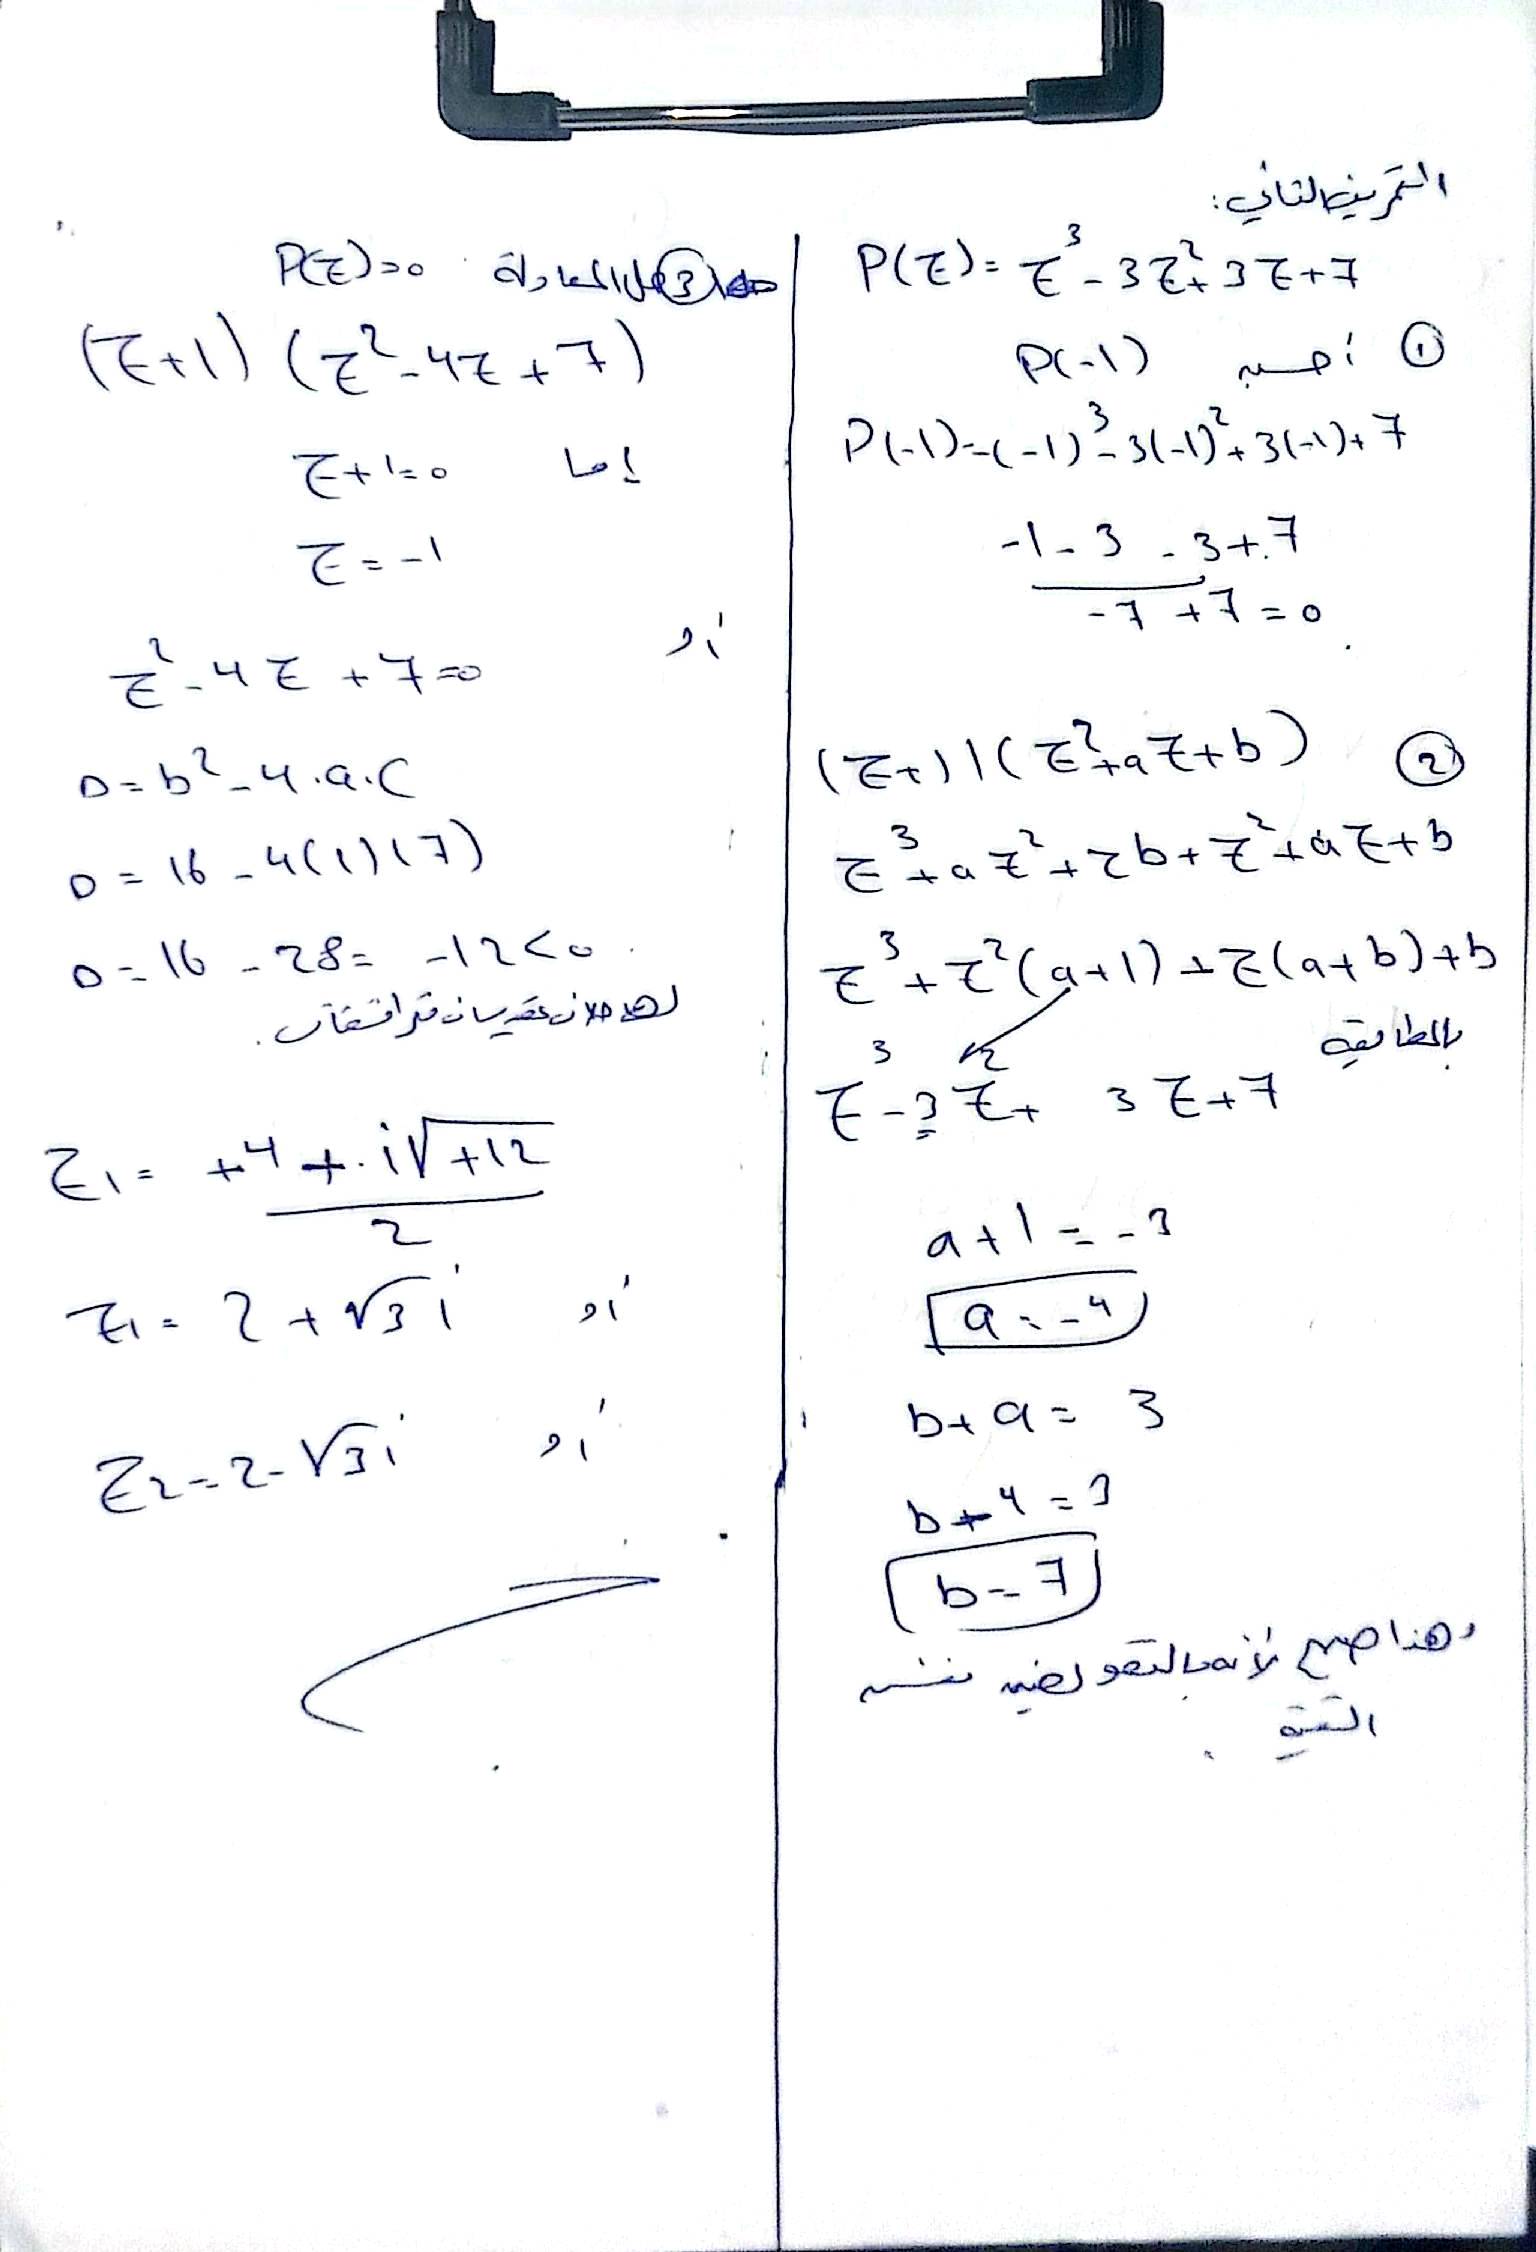 التمرين الثاني:
P(Z) = Z³ - 3Z² + 3Z + 7
① أحسب P(-1)
P(-1) = (-1)³ - 3(-1)² + 3(-1) + 7
-1 - 3 - 3 + 7
-7 + 7 = 0
② (Z+1)(Z² + aZ + b)
Z³ + aZ² + Zb + Z² + aZ + b
Z³ + Z²(a+1) + Z(a+b) + b
بالمطابقة
Z³ - 3Z² + 3Z + 7
a + 1 = -3
a = -4
b + a = 3
b - 4 = 3
b = 7
وهنا صحيح لأنه بالتعويض نفسه
③ حل المعادلة P(Z) = 0
(Z+1) (Z² - 4Z + 7)
إما Z + 1 = 0
Z = -1
أو Z² - 4Z + 7 = 0
D = b² - 4.a.c
D = 16 - 4(1)(7)
D = 16 - 28 = -12 < 0
Z1 = +4 + i√+12
2
أو Z1 = 2 + √3 i
أو Z2 = 2 - √3 i